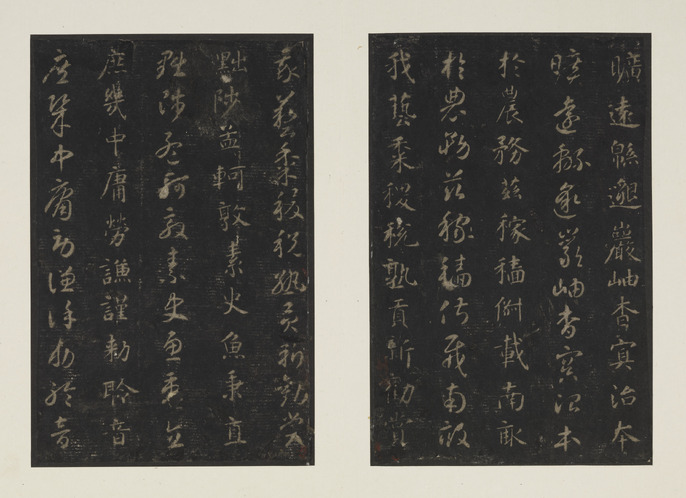 曠遠緜邈巖岫杳冥治本
曠遠緜邈巖岫杳冥治本
於農務茲稼穡俶載南畝
於農務茲稼穡俶載南畝
我藝黍稷稅熟貢新勸賞
我藝黍稷稅熟貢新勸賞
黜陟孟軻敦素史魚秉直
黜陟孟軻敦素史魚秉直
庶幾中庸勞謙謹勅聆音
庶幾中庸勞謙謹勅聆音